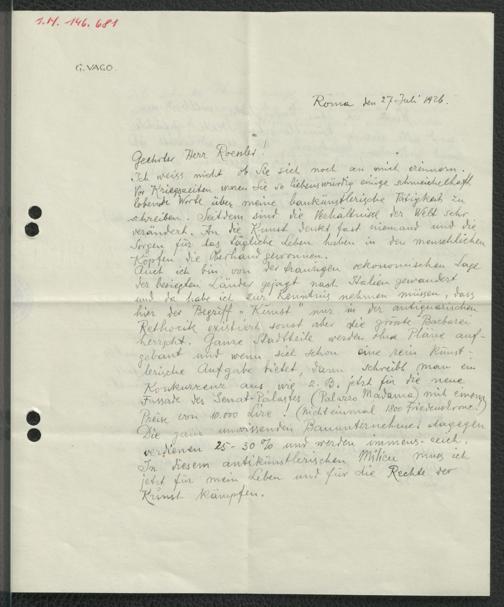 I.N. 146.681
G. VAGO.
Roma den 27. Juli 1926.
Geehrter Herr Roessler!
Ich weiss nicht ob Sie sich noch an mich erinnern.
Vor Kriegszeiten waren Sie so liebenswürdig einige schmeichelhaft
lobende Worte über meine baukünstlerische Tätigkeit zu
schreiben. Seitdem sind die Verhältnisse der Welt sehr
verändert. An die Kunst denkt fast niemand und die
Sorgen für das tägliche Leben haben in den menschlichen
Köpfen die Oberhand gewonnen.
Auch ich bin von der traurigen oekonomischen Lage
der besiegten Länder gejagt nach Italien gewandert
und da habe ich zur Kenntnis nehmen müssen, dass
hier der Begriff "Kunst" nur in der antiquarischen
Rethorik existiert sonst aber die grösste Barbarei
herrscht. Ganze Stadtteile werden ohne Pläne auf-
gebaut und wenn sich schon eine rein künst-
lerische Aufgabe bietet, dann schreibt man ein
Konkurrenz aus wie z. B. jetzt für die neue
Fassade des Senat-Palastes (Palazzo Madama) mit einem
Preise von 10.000 Lire! (Nicht einmal 1800 Friedenskrone!)
Die ganz unwissenden Bauunternehmer dagegen
verdienen 25-30% und werden immens reich.
In diesem antikünstlerischen Milieu muss ich
jetzt für mein Leben und für die Rechte der
Kunst kämpfen.